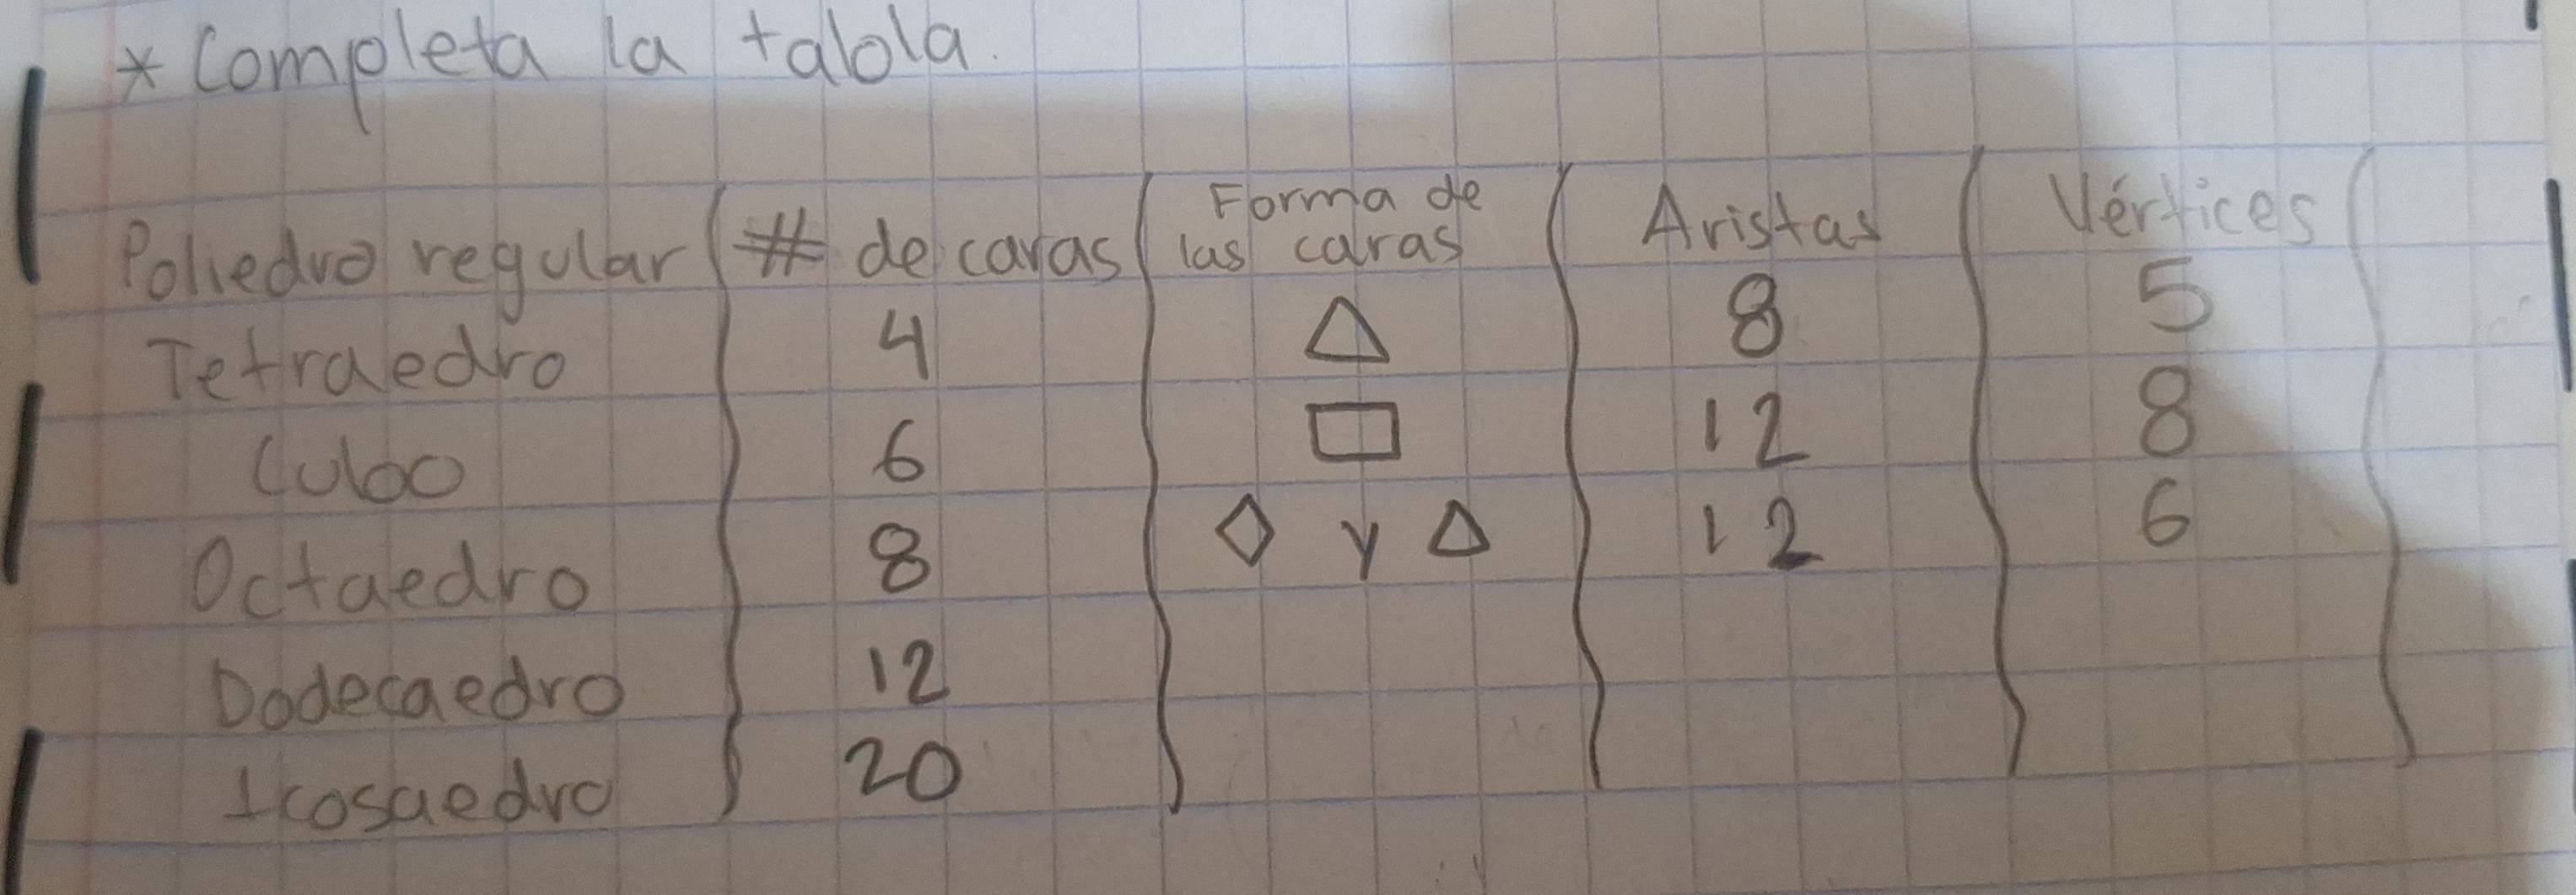 * Completa la tabla.
Poliedro regular # de caras Forma de las caras Aristas Vértices
Tetraedro 4 △ 8 5
Cubo 6 □ 12 8
Octaedro 8 ◇ y △ 12 6
Dodecaedro 12
Icosaedro 20